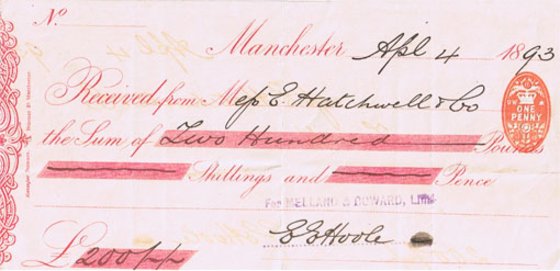 No
Manchester Apl 4 1893
Received from Mess E. Hatchwell & Co
the Sum of Two Hundred Pounds
Shillings and Pence
ONE PENNY
For MELLAND & COWARD, LIMD
£200
E E Hoole